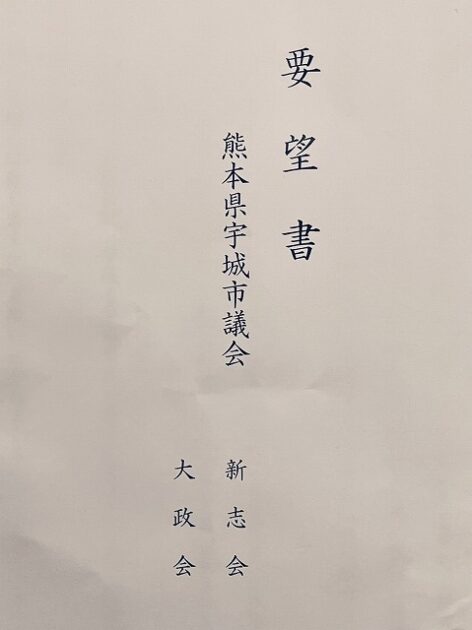 要望書
熊本県宇城市議会
新志会
大政会